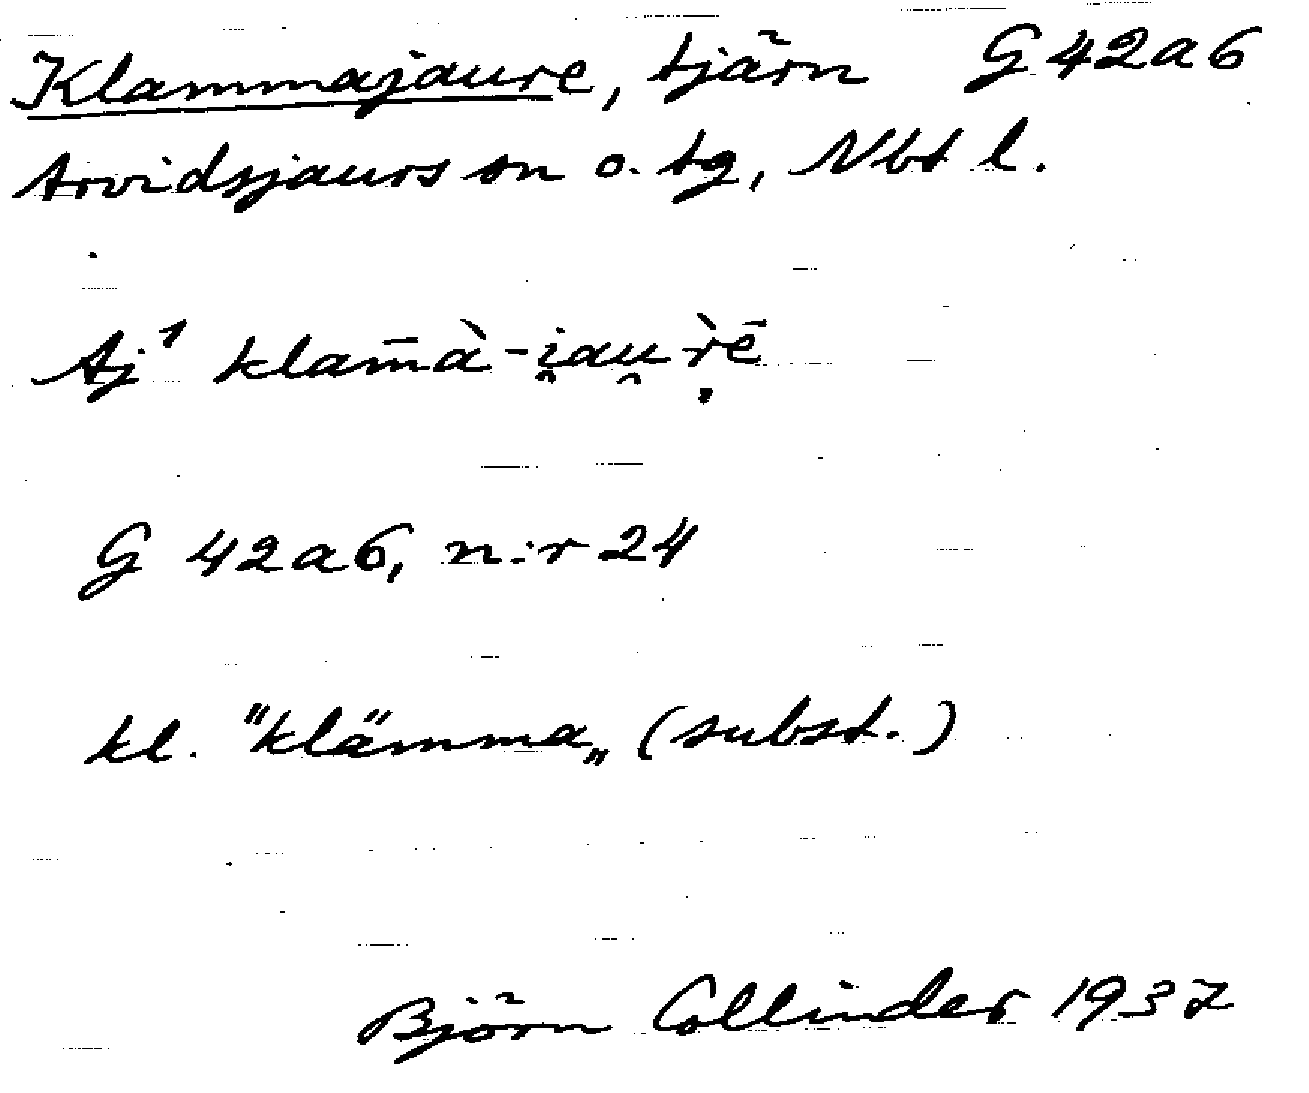 Klammajaure, tjärn G 42a6
Arvidsjaurs sn o. tg, Nbt l.
Aj¹ klam̄à-i̯au̯ṛ̀ē
G 42a6, n:r 24
kl. "klämma„ (subst.)
Björn Collinder 1937